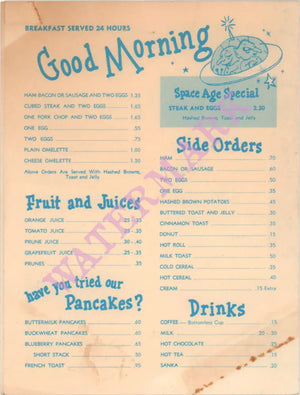 BREAKFAST SERVED 24 HOURS
Good Morning
HAM BACON OR SAUSAGE AND TWO EGGS 1.35
CUBED STEAK AND TWO EGGS 1.65
ONE PORK CHOP AND TWO EGGS 1.65
ONE EGG .55
TWO EGGS .75
PLAIN OMELETTE 1.00
CHEESE OMELETTE 1.30
Above Orders Are Served With Hashed Browns, Toast and Jelly
Space Age Special
STEAK AND EGGS 2.50
Hashed Browns, Toast and Jelly
Fruit and Juices
ORANGE JUICE
TOMATO JUICE
PRUNE JUICE .30 - .40
GRAPEFRUIT JUICE
PRUNES .35
have you tried our
Pancakes?
BUTTERMILK PANCAKES .60
BUCKWHEAT PANCAKES .60
BLUEBERRY PANCAKES .65
SHORT STACK .50
FRENCH TOAST .95
Side Orders
HAM .70
BACON OR SAUSAGE .60
TWO EGGS .50
ONE EGG .35
HASHED BROWN POTATOES .45
BUTTERED TOAST AND JELLY .30
CINNAMON TOAST .35
DONUT .15
HOT ROLL .35
MILK TOAST .50
COLD CEREAL .35
HOT CEREAL .40
CREAM .15 Extra
Drinks
COFFEE — Bottomless Cup
MILK .20 - .30
HOT CHOCOLATE .25
HOT TEA .15
SANKA
WATERMARK